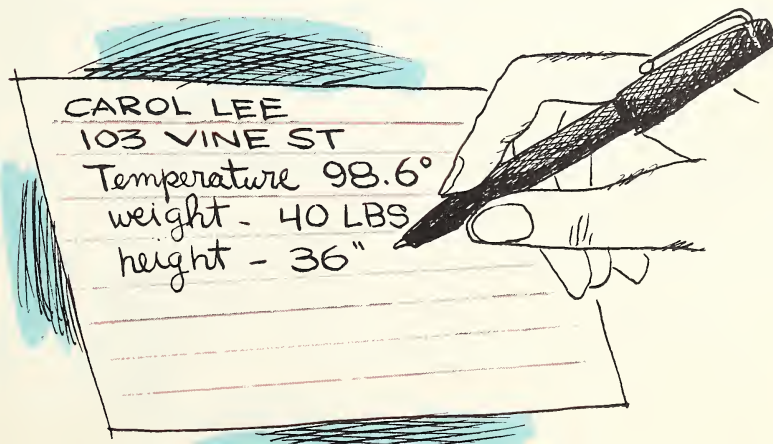 CAROL LEE
103 VINE ST
Temperature 98.6°
weight - 40 LBS
height - 36"